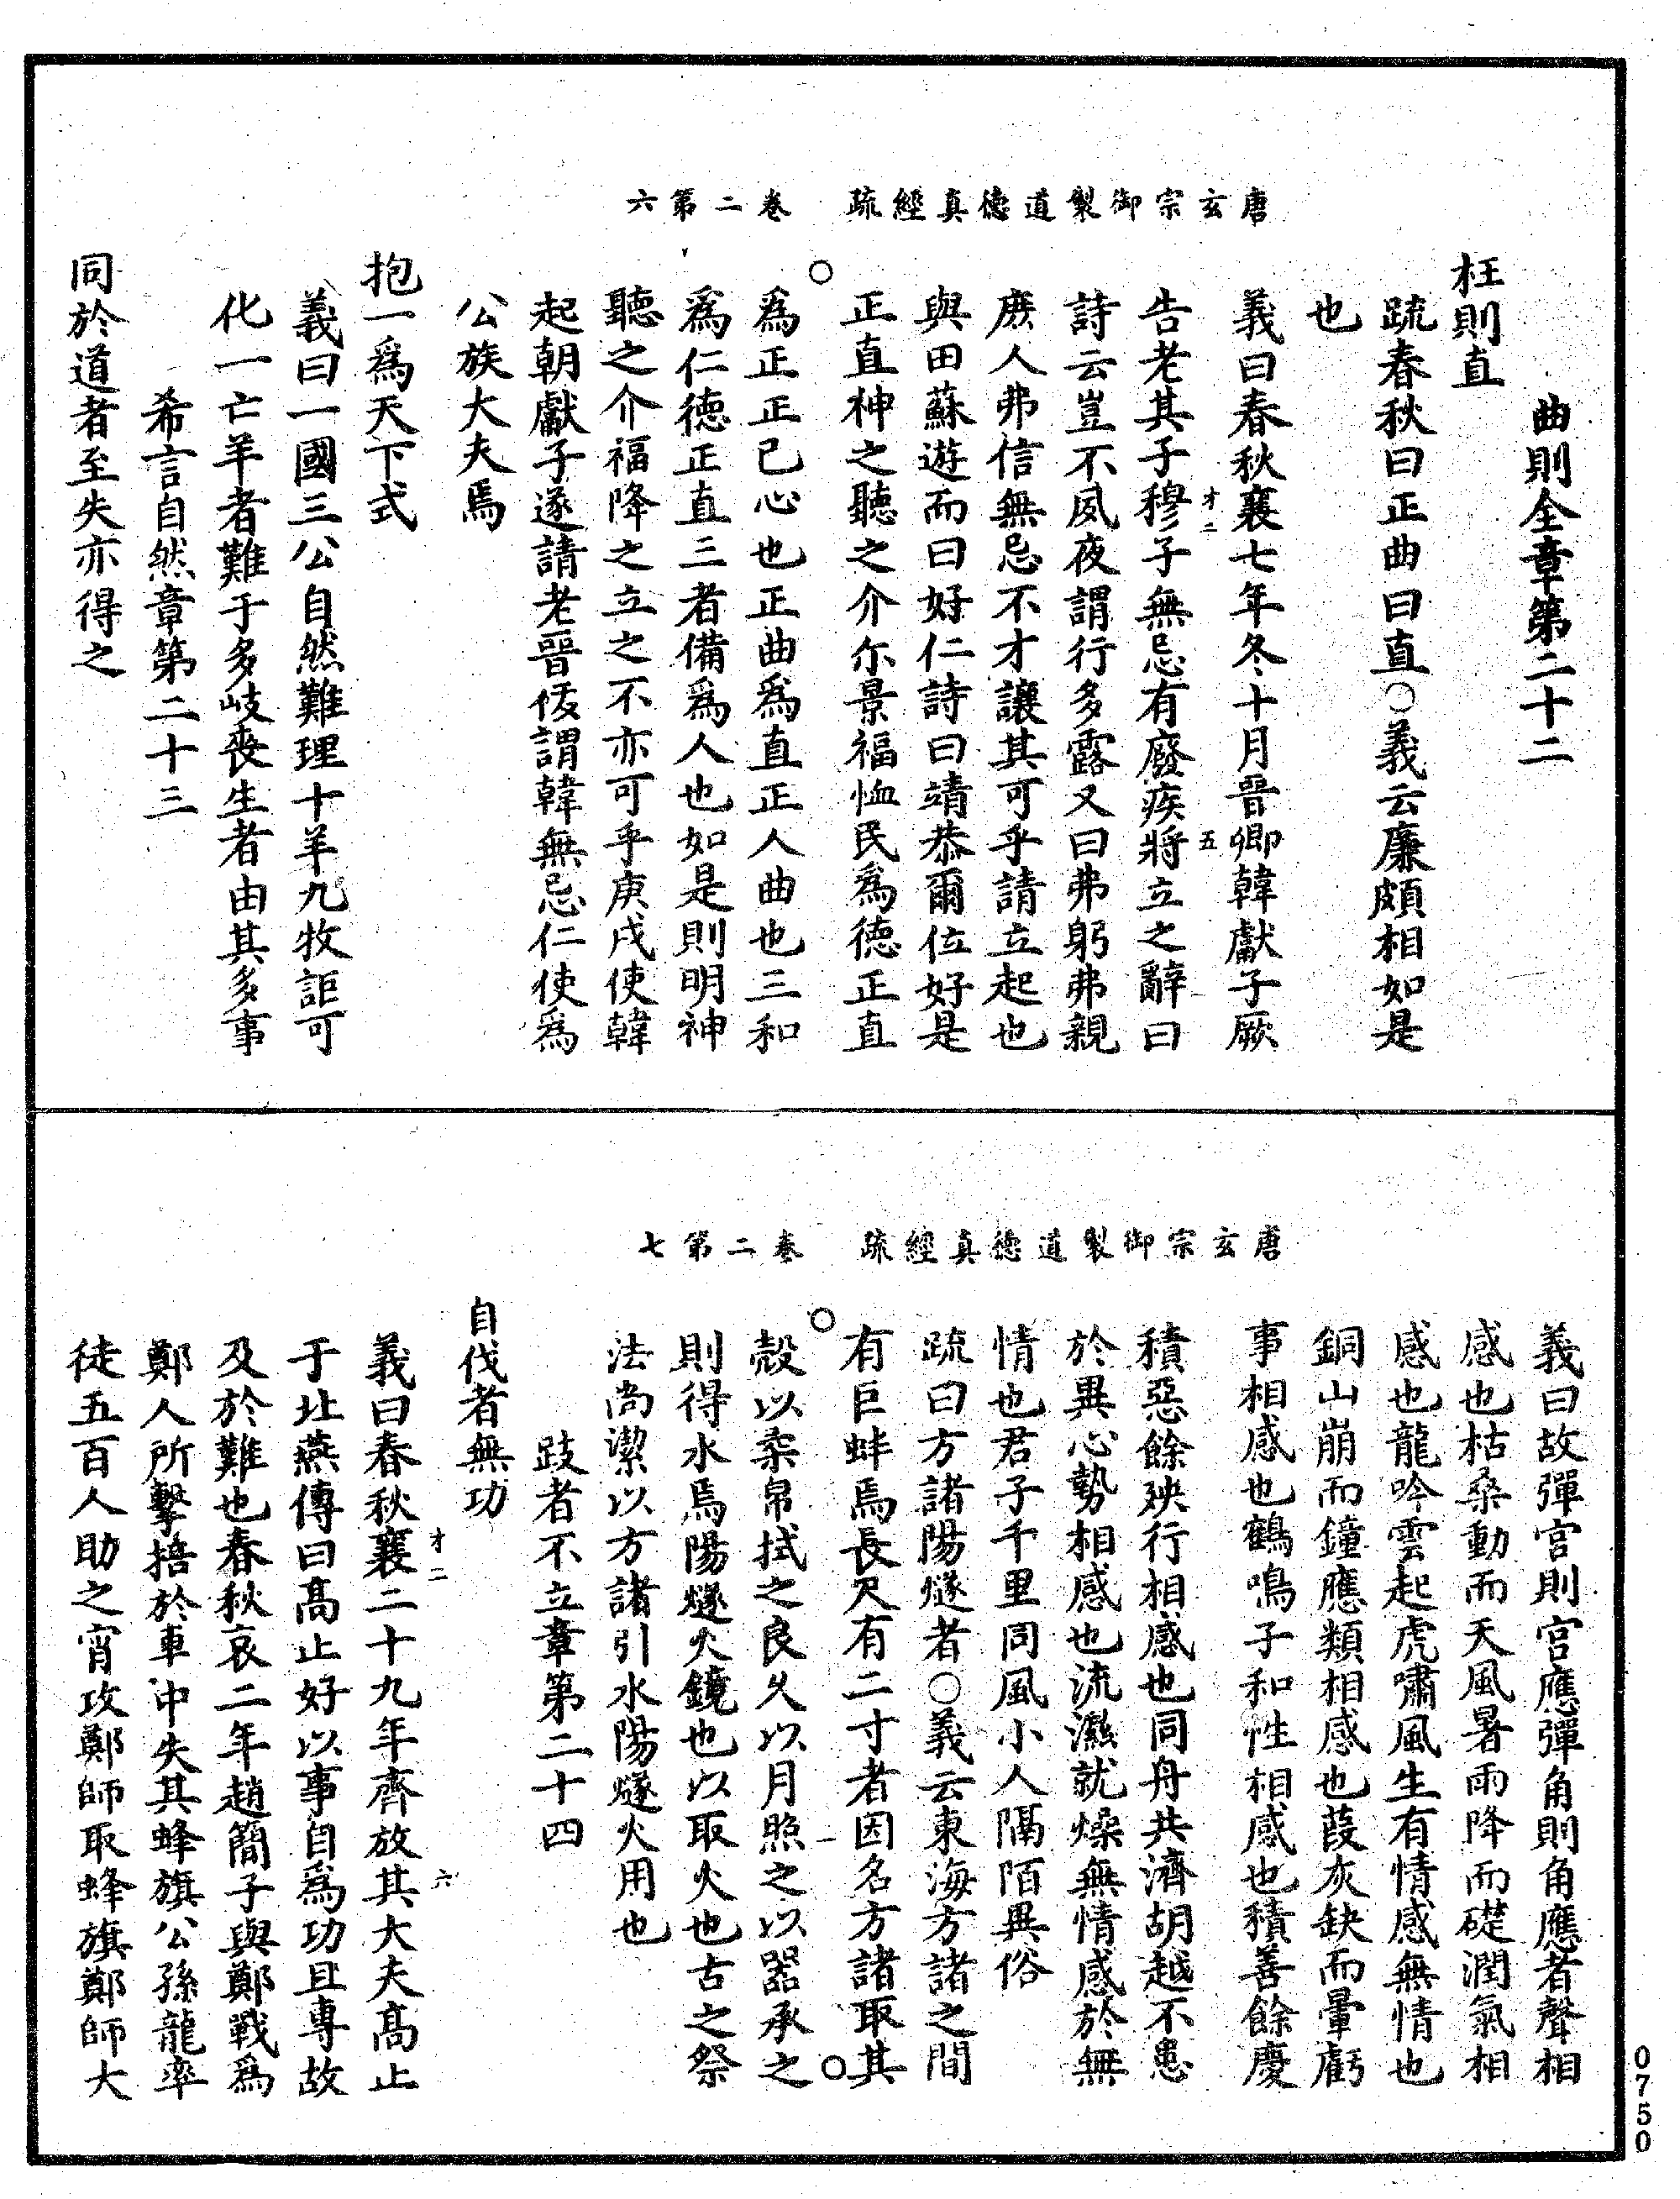 唐玄宗御製道德真經疏　卷二第六
曲則全章第二十二
枉則直
疏春秋曰正曲曰直○義云廉頗相如是
也
義曰春秋襄七年冬十月晉卿韓獻子厥
才二
五
告老其子穆子無忌有廢疾將立之辭曰
詩云豈不夙夜謂行多露又曰弗躬弗親
庶人弗信無忌不才讓其可乎請立起也
與田蘇遊而曰好仁詩曰靖恭爾位好是
正直神之聽之介尒景福恤民爲德正直
○
爲正正已心也正曲爲直正人曲也三和
爲仁德正直三者備爲人也如是則明神
聽之介福降之立之不亦可乎庚戌使韓
起朝獻子遂請老晉侯謂韓無忌仁使爲
公族大夫焉
抱一爲天下式
義曰一國三公自然難理十羊九牧詎可
化一亡羊者難于多岐喪生者由其多事
希言自然章第二十三
同於道者至失亦得之
唐玄宗御製道德真經疏　卷二第七
義曰故彈宮則宮應彈角則角應者聲相
感也枯桑動而天風暑雨降而礎潤氣相
感也龍吟雲起虎嘯風生有情感無情也
銅山崩而鐘應類相感也葭灰缺而暈虧
事相感也鶴鳴子和性相感也積善餘慶
積惡餘殃行相感也同舟共濟胡越不患
於異心勢相感也流濕就燥無情感於無
情也君子千里同風小人隔陌異俗
疏曰方諸陽燧者○義云東海方諸之間
有巨蚌焉長尺有二寸者因名方諸取其
○
○
殼以柔帛拭之良久以月照之以器承之
則得水焉陽燧火鏡也以取火也古之祭
法尚潔以方諸引水陽燧火用也
跂者不立章第二十四
自伐者無功
才二
六
義曰春秋襄二十九年齊放其大夫高止
于北燕傳曰高止好以事自爲功且專故
及於難也春秋哀二年趙簡子與鄭戰爲
鄭人所擊掊於車中失其蜂旗公孫龍率
徒五百人助之宵攻鄭師取蜂旗鄭師大
0750